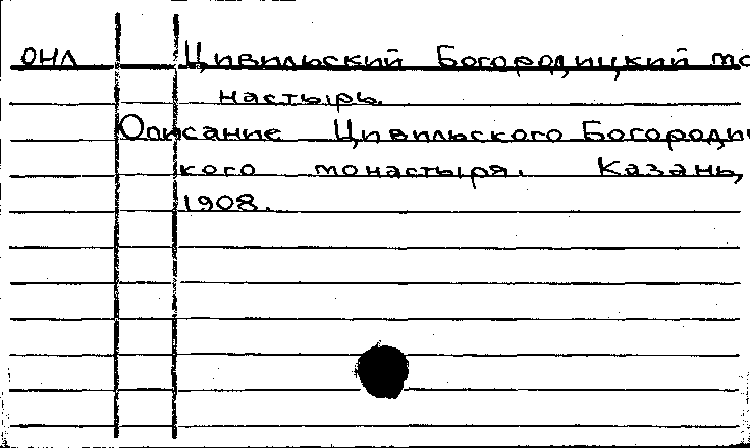 ОНЛ Цивильский Богородицкий мо
настырь.
Описание Цивильского Богороди
кого монастыря. Казань,
1908.